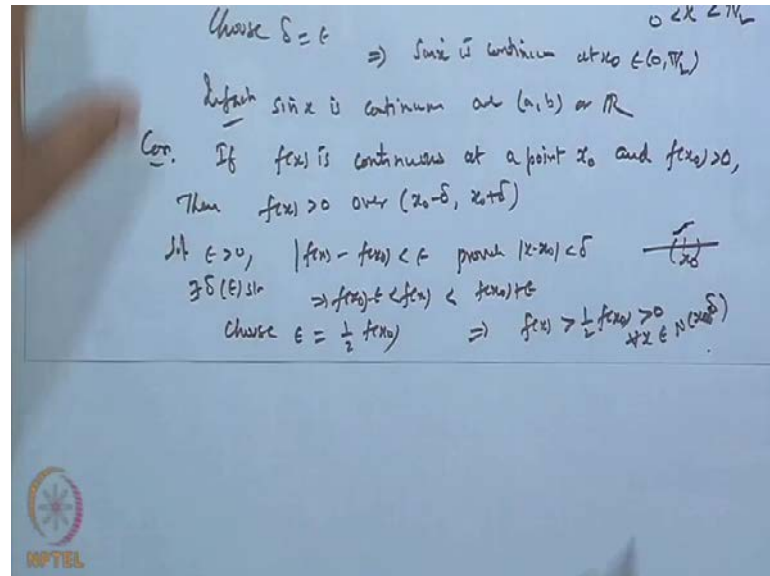 Choose δ = ε 0 < x < π/2
⇒ Sinx is continuous at x0 ∈ (0, π/2)
Infact sin x is continuous over (a, b) or R
Cor. If f(x) is continuous at a point x0 and f(x0) > 0,
Then f(x) > 0 over (x0-δ, x0+δ)
ε > 0, |f(x) - f(x0)| < ε provided |x-x0| < δ (x0)
∃ δ(ε) s.t. ⇒ f(x0)-ε < f(x) < f(x0)+ε
Choose ε = 1/2 f(x0) ⇒ f(x) > 1/2 f(x0) > 0
∀x ∈ N(x0, δ)
NPTEL